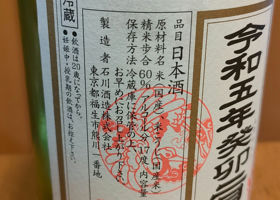 令和五年癸卯
品目 日本酒
原材料名 米(国産)、米こうじ(国産米)
精米歩合 60% アルコール分 17度 内容量
保存方法 冷蔵庫に保管の上、
お早めにお召し上がり下さい
製造者 石川酒造株式会社
東京都福生市熊川一番地
冷蔵
●飲酒は20歳になってから。
●妊娠中・授乳期の飲酒は、お控え下さい。